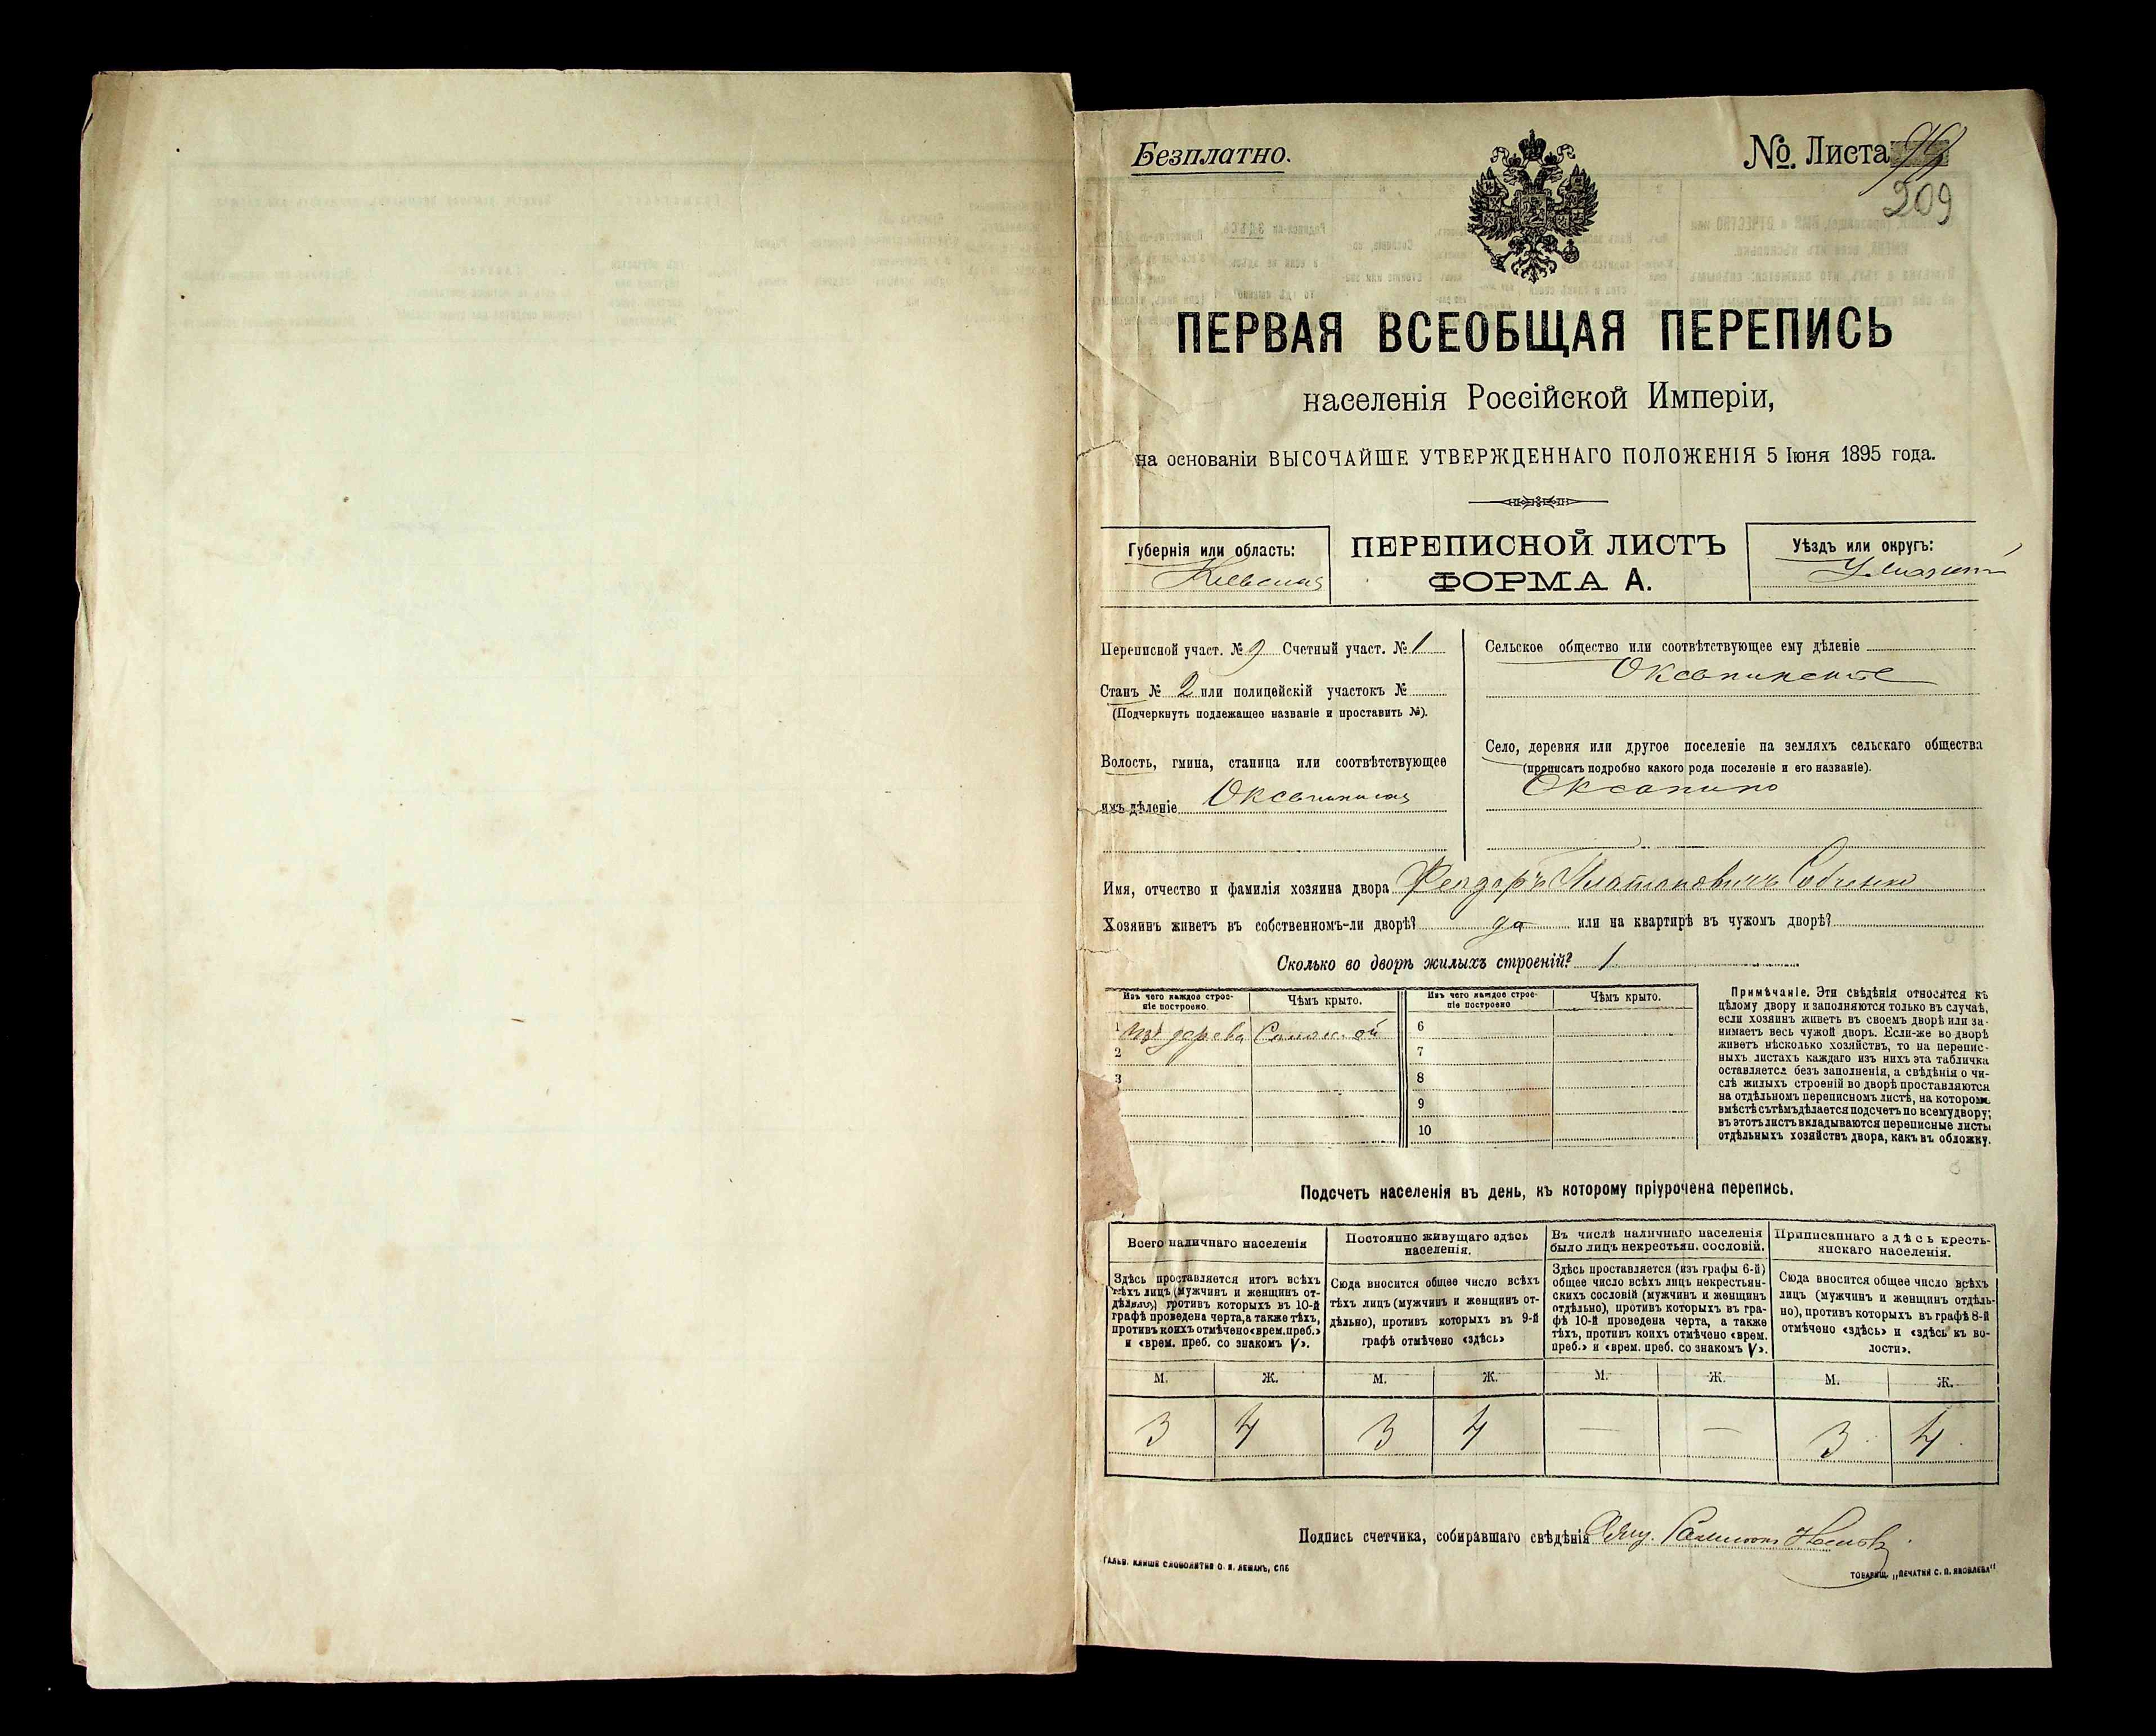 Безплатно.
№ Листа 99
209
ПЕРВАЯ ВСЕОБЩАЯ ПЕРЕПИСЬ
населенія Россійской Имперіи,
на основаніи ВЫСОЧАЙШЕ УТВЕРЖДЕННАГО ПОЛОЖЕНІЯ 5 Іюня 1895 года.
Губернія или область:
Кіевская
ПЕРЕПИСНОЙ ЛИСТЪ
ФОРМА А.
Уѣздъ или округъ:
Уманскій
Переписной участ. № 9 Счетный участ. № 1
Станъ № 2 или полицейскій участокъ №
(Подчеркнуть подлежащее названіе и проставить №).
Волость, гмина, станица или соотвѣтствующее
имъ дѣленіе Оксанинская
Сельское общество или соотвѣтствующее ему дѣленіе
Оксанинское
Село, деревня или другое поселеніе на земляхъ сельскаго общества
(прописать подробно какого рода поселеніе и его названіе).
Оксанино
Имя, отчество и фамилія хозяина двора Феодоръ Платоновичъ
Хозяинъ живетъ въ собственномъ-ли дворѣ? да или на квартирѣ въ чужомъ дворѣ?
Сколько во дворѣ жилыхъ строеній? 1
Изъ чего каждое строе-
ніе построено
Чѣмъ крыто.
Изъ чего каждое строе-
ніе построено
Чѣмъ крыто.
1 изъ дерева Солом. ой
2
3
6
7
8
9
10
Примѣчаніе. Эти свѣдѣнія относятся къ
цѣлому двору и заполняются только въ случаѣ,
если хозяинъ живетъ въ своемъ дворѣ или за-
нимаетъ весь чужой дворъ. Если-же во дворѣ
живетъ нѣсколько хозяйствъ, то на перепис-
ныхъ листахъ каждаго изъ нихъ эта табличка
оставляется безъ заполненія, а свѣдѣнія о чи-
слѣ жилыхъ строеній во дворѣ проставляются
на отдѣльномъ переписномъ листѣ, на которомъ
вмѣстѣ съ тѣмъ дѣлается подсчетъ по всему двору;
въ этотъ листъ вкладываются переписные листы
отдѣльныхъ хозяйствъ двора, какъ въ обложку.
Подсчетъ населенія въ день, къ которому пріурочена перепись.
Всего наличнаго населенія
Здѣсь проставляется итогъ всѣхъ
тѣхъ лицъ (мужчинъ и женщинъ от-
дѣльно) противъ которыхъ въ 10-й
графѣ проведена черта, а также тѣхъ,
противъ коихъ отмѣчено «врем. преб.»
и «врем. преб. со знакомъ V».
Постоянно живущаго здѣсь
населенія.
Сюда вносится общее число всѣхъ
тѣхъ лицъ (мужчинъ и женщинъ от-
дѣльно), противъ которыхъ въ 9-й
графѣ отмѣчено «здѣсь»
Въ числѣ наличнаго населенія
было лицъ некрестьян. сословій.
Здѣсь проставляется (изъ графы 6-й)
общее число всѣхъ лицъ некрестьян-
скихъ сословій (мужчинъ и женщинъ
отдѣльно), противъ которыхъ въ гра-
фѣ 10-й проведена черта, а также
тѣхъ, противъ коихъ отмѣчено «врем.
преб.» и «врем. преб. со знакомъ V».
Приписаннаго здѣсь кресть-
янскаго населенія.
Сюда вносится общее число всѣхъ
лицъ (мужчинъ и женщинъ отдѣль-
но), противъ которыхъ въ графѣ 8-й
отмѣчено «здѣсь» и «здѣсь къ во-
лости».
М. Ж. М. Ж. М. Ж. М. Ж.
3 4 3 4 — — 3 4
Подпись счетчика, собиравшаго свѣдѣнія
ГАЛЬВ. КЛИШЕ СЛОВОЛИТНИ О. И. ЛЕМАНЪ, СПБ
ТОВАРИЩ. „ПЕЧАТНЯ С. П. ЯКОВЛЕВА"